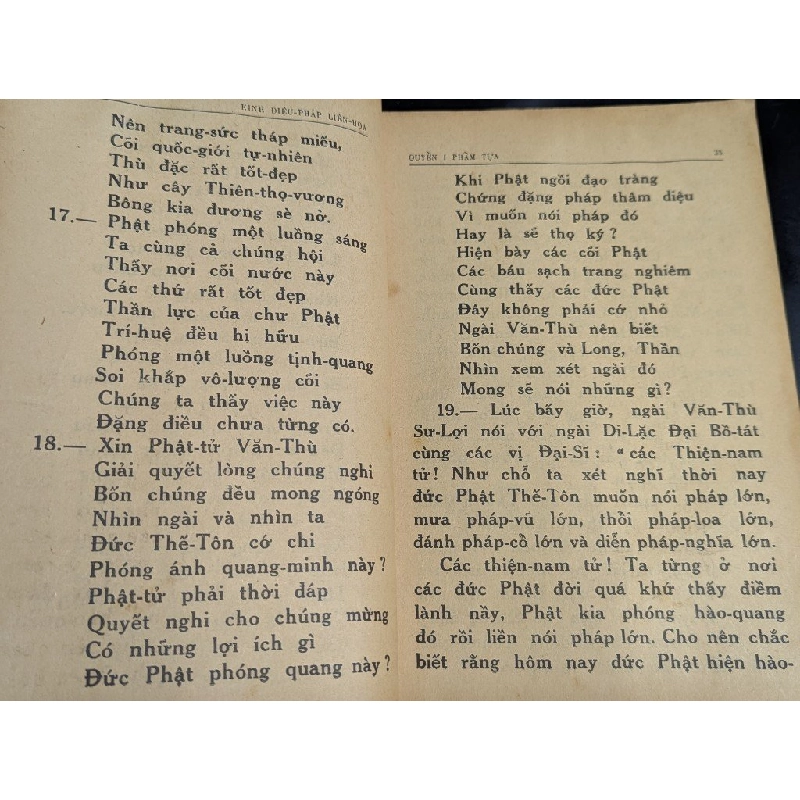 KINH DIỆU-PHÁP LIÊN-HOA
Nên trang-sức tháp miếu,
Cõi quốc-giới tự-nhiên
Thù đặc rất tốt-đẹp
Như cây Thiên-thọ-vương
Bông kia đương sè nở.
17.— Phật phóng một luồng sáng
Ta cùng cả chúng hội
Thấy nơi cõi nước này
Các thứ rất tốt đẹp
Thần lực của chư Phật
Trí-huệ đều hi hữu
Phóng một luồng tịnh-quang
Soi khắp vô-lượng cõi
Chúng ta thấy việc này
Đặng điều chưa từng có.
18.— Xin Phật-tử Văn-Thù
Giải quyết lòng chúng nghi
Bốn chúng đều mong ngóng
Nhìn ngài và nhìn ta
Đức Thế-Tôn cớ chi
Phóng ánh quang-minh này?
Phật-tử phải thời đáp
Quyết nghi cho chúng mừng
Có những lợi ích gì
Đức Phật phóng quang này?
QUYỂN I PHẨM TỰA
Khi Phật ngồi đạo tràng
Chứng đặng pháp thâm diệu
Vì muốn nói pháp đó
Hay là sẽ thọ ký?
Hiện bày các cõi Phật
Các báu sạch trang nghiêm
Cùng thấy các đức Phật
Đây không phải cớ nhỏ
Ngài Văn-Thù nên biết
Bốn chúng và Long, Thần
Nhìn xem xét ngài đó
Mong sẽ nói những gì?
19.— Lúc bấy giờ, ngài Văn-Thù
Sư-Lợi nói với ngài Di-Lặc Đại Bồ-tát
cùng các vị Đại-Sĩ: "các Thiện-nam
tử! Như chỗ ta xét nghĩ thời nay
đức Phật Thế-Tôn muốn nói pháp lớn,
mưa pháp-vũ lớn, thổi pháp-loa lớn,
đánh pháp-cổ lớn và diễn pháp-nghĩa lớn.
Các thiện-nam tử! Ta từng ở nơi
các đức Phật đời quá khứ thấy điềm
lành nầy, Phật kia phóng hào-quang
đó rồi liền nói pháp lớn. Cho nên chắc
biết rằng hôm nay đức Phật hiện hào-